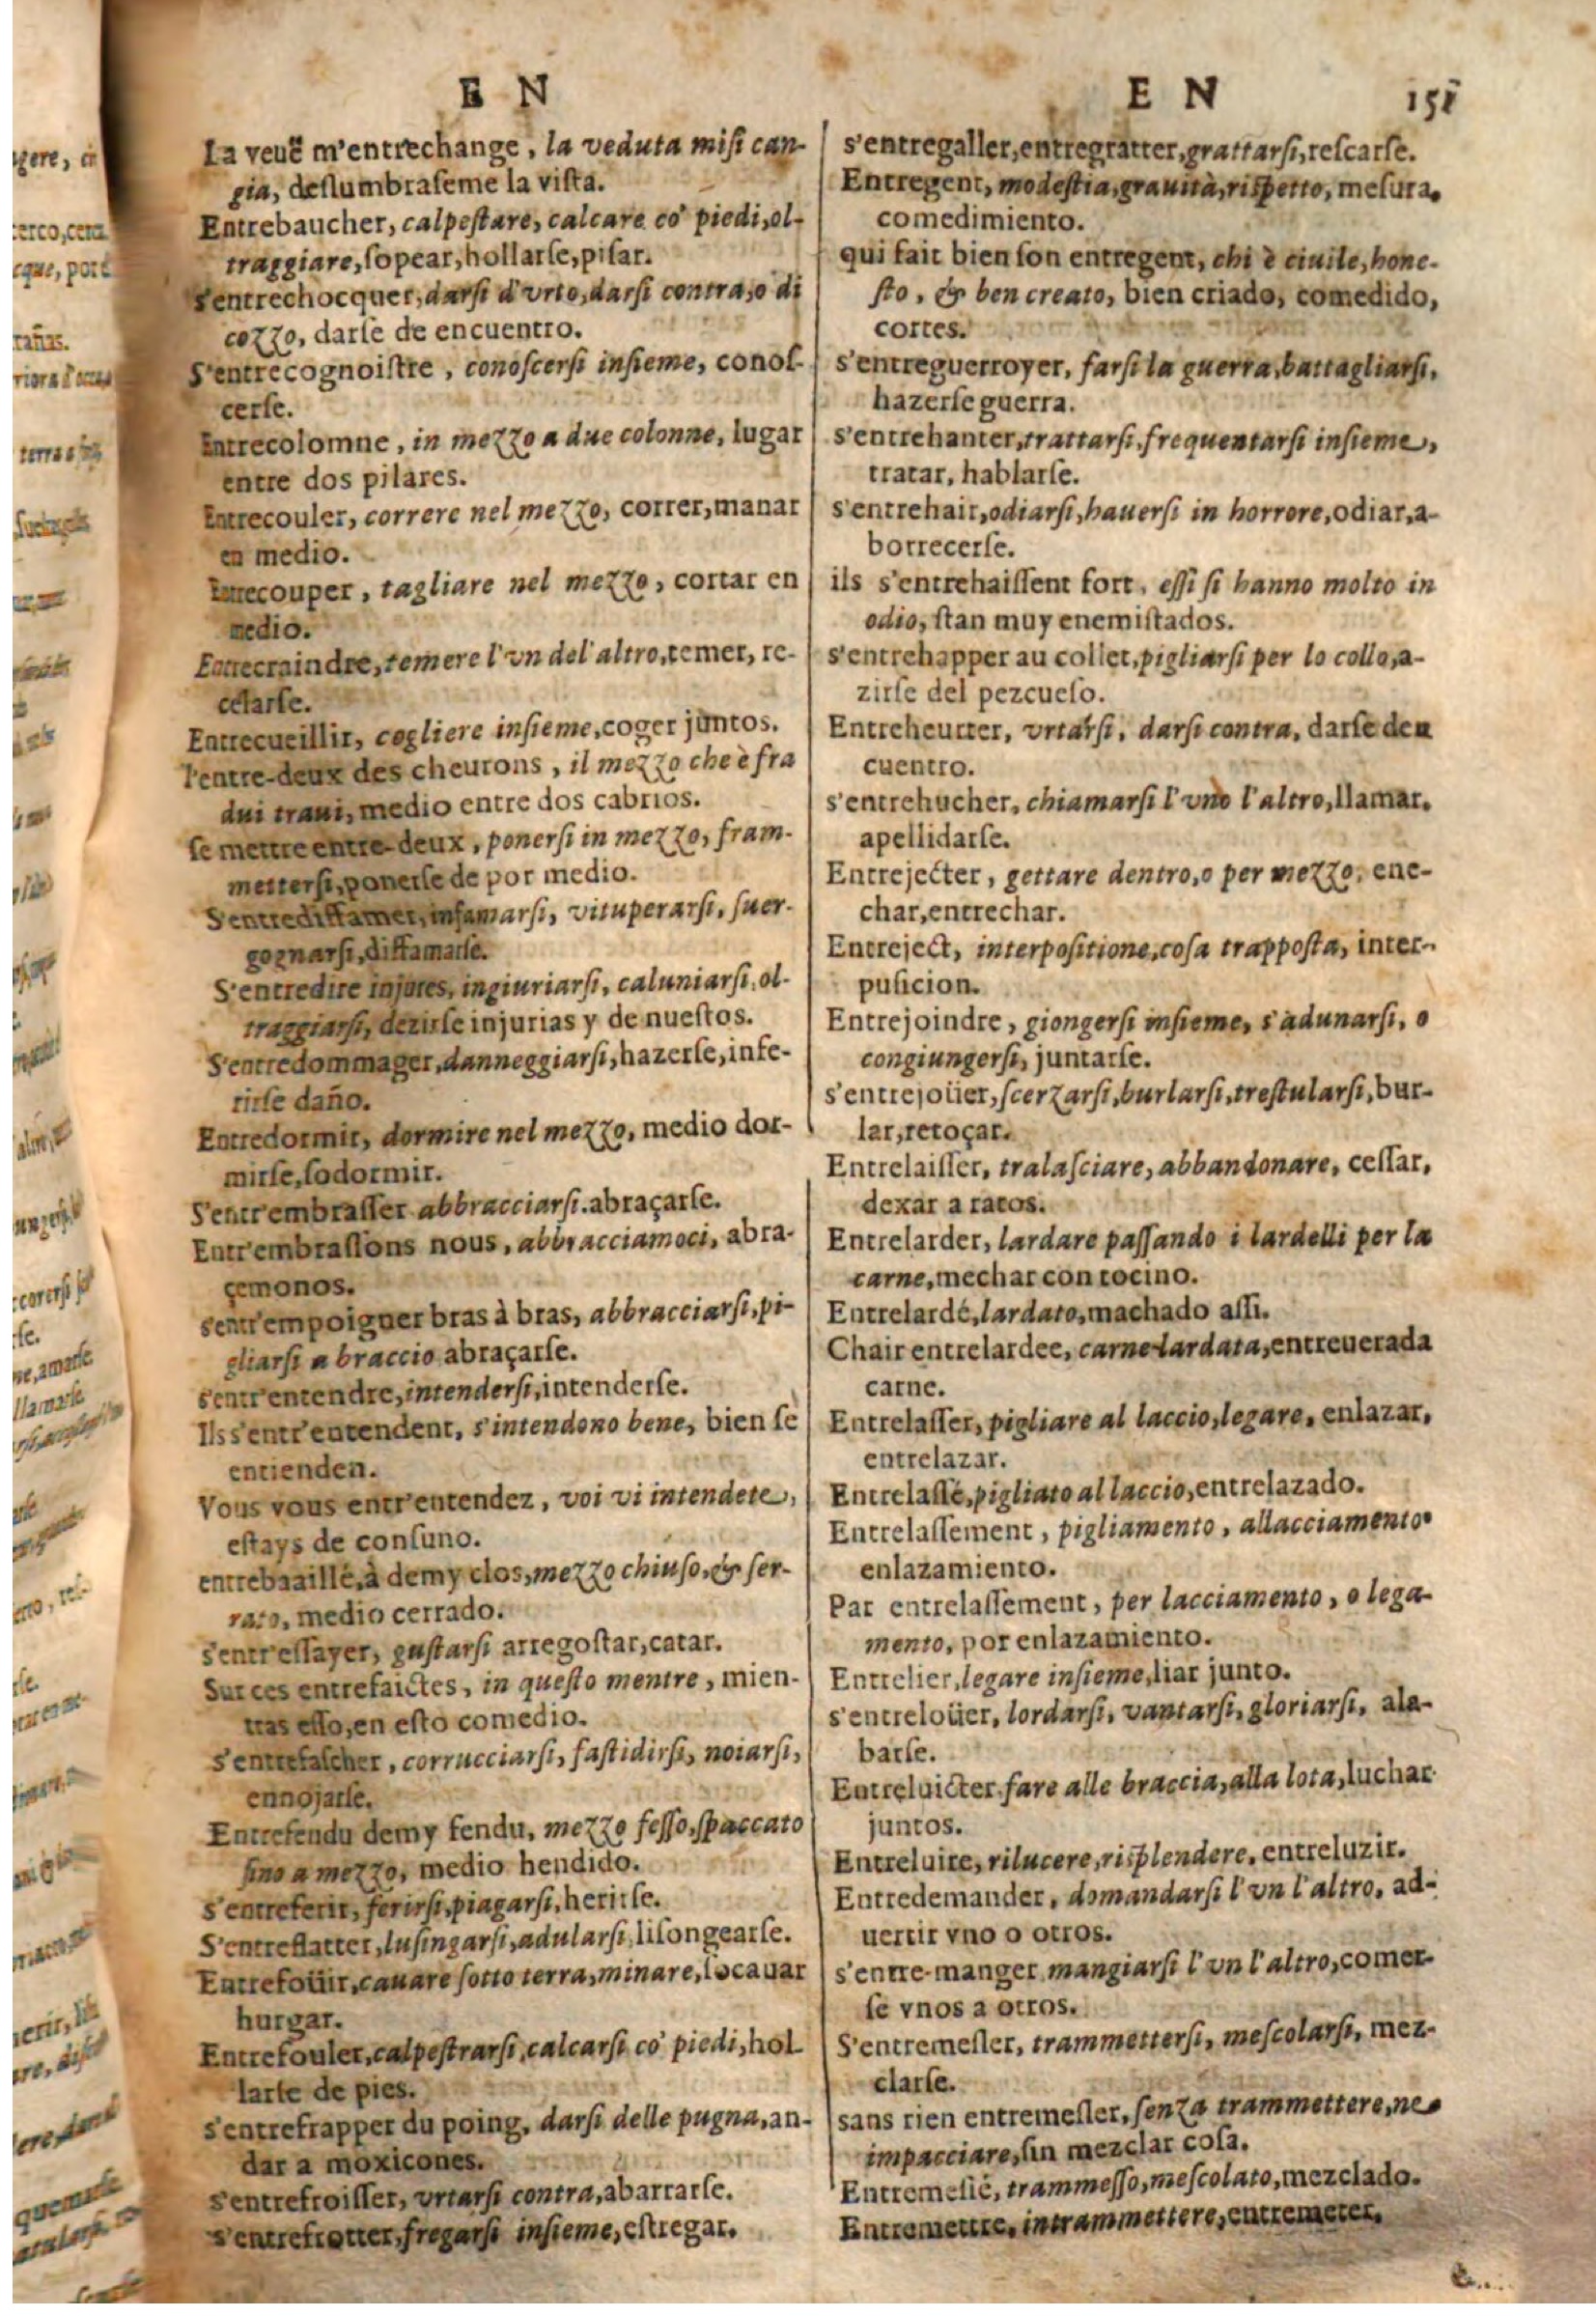 E N
La veuë m'entrechange, la veduta misi can-
gia, deslumbraseme la vista.
Entrebaucher, calpestare, calcare co' piedi, ol-
traggiare, sopear, hollarse, pisar.
s'entrechocquer, darsi d'vrto, darsi contra, o di
cozzo, darse de encuentro.
S'entrecognoistre, conoscersi insieme, conos-
cerse.
Entrecolomne, in mezzo a due colonne, lugar
entre dos pilares.
Entrecouler, correre nel mezzo, correr, manar
en medio.
Entrecouper, tagliare nel mezzo, cortar en
medio.
Entrecraindre, temere l'vn del' altro, temer, re-
celarse.
Entrecueillir, cogliere insieme, coger juntos.
l'entre-deux des cheurons, il mezzo che è fra
dui traui, medio entre dos cabrios.
se mettre entre-deux, ponersi in mezzo, fram-
mettersi, ponerse de por medio.
S'entrediffamer, infamarsi, vituperarsi, suer-
gognarsi, diffamarse.
S'entredire injures, ingiuriarsi, caluniarsi, ol-
traggiarsi, dezirse injurias y de nuestos.
S'entredommager, danneggiarsi, hazerse, infe-
rirse daño.
Entredormir, dormire nel mezzo, medio dor-
mirse, sodormir.
S'entr'embrasser abbracciarsi. abraçarse.
Entr'embrassons nous, abbracciamoci, abra-
çemonos.
s'entr'empoigner bras à bras, abbracciarsi, pi-
gliarsi a braccio abraçarse.
s'entr'entendre, intendersi, intenderse.
Ils s'entr'entendent, s'intendono bene, bien se
entienden.
Vous vous entr'entendez, voi vi intendete,
estays de consuno.
entrebaaillé, à demy clos, mezzo chiuso, & ser-
rato, medio cerrado.
s'entr'essayer, gustarsi arregostar, catar.
Sur ces entrefaictes, in questo mentre, mien-
tras esso, en esto comedio.
s'entrefascher, corrucciarsi, fastidirsi, noiarsi,
ennojarse.
Entrefendu demy fendu, mezzo fesso, spaccato
fino a mezzo, medio hendido.
s'entreferir, ferirsi, piagarsi, herirse.
S'entreflatter, lusingarsi, adularsi, lisongearse.
Entrefoüir, cauare sotto terra, minare, socauar
hurgar.
Entrefouler, calpestrarsi, calcarsi co' piedi, hol-
larse de pies.
s'entrefrapper du poing, darsi delle pugna, an-
dar a moxicones.
s'entrefroisser, vrtarsi contra, abarrarse.
s'entrefrotter, fregarsi insieme, estregar.
E N 151
s'entregaller, entregratter, grattarsi, rescarse.
Entregent, modestia, grauità, rispetto, mesura,
comedimiento.
qui fait bien son entregent, chi è ciuile, hone-
sto, & ben creato, bien criado, comedido,
cortes.
s'entreguerroyer, farsi la guerra, battagliarsi,
hazerse guerra.
s'entrehanter, trattarsi, frequentarsi insieme,
tratar, hablarse.
s'entrehair, odiarsi, hauersi in horrore, odiar, a-
borrecerse.
ils s'entrehaissent fort, essi si hanno molto in
odio, stan muy enemistados.
s'entrehapper au collet, pigliarsi per lo collo, a-
zirse del pezcueso.
Entreheurter, vrtarsi, darsi contra, darse den
cuentro.
s'entrehucher, chiamarsi l'vno l'altro, llamar,
apellidarse.
Entrejecter, gettare dentro, o per mezzo, ene-
char, entrechar.
Entreject, interpositione, cosa trapposta, inter-
pusicion.
Entrejoindre, giongersi insieme, s'adunarsi, o
congiungersi, juntarse.
s'entrejoüer, scerzarsi, burlarsi, trestularsi, bur-
lar, retoçar.
Entrelaisser, tralasciare, abbandonare, cessar,
dexar a ratos.
Entrelarder, lardare passando i lardelli per la
carne, mechar con tocino.
Entrelardé, lardato, machado assi.
Chair entrelardee, carne lardata, entreuerada
carne.
Entrelasser, pigliare al laccio, legare, enlazar,
entrelazar.
Entrelassé, pigliato al laccio, entrelazado.
Entrelassement, pigliamento, allacciamento
enlazamiento.
Par entrelassement, per lacciamento, o lega-
mento, por enlazamiento.
Entrelier, legare insieme, liar junto.
s'entreloüer, lordarsi, vantarsi, gloriarsi, ala-
barse.
Entreluicter, fare alle braccia, alla lota, luchar
juntos.
Entreluire, rilucere, risplendere, entreluzir.
Entredemander, domandarsi l'vn l'altro, ad-
uertir vno o otros.
s'entre-manger mangiarsi l'vn l'altro, comer-
se vnos a otros.
S'entremesler, trammettersi, mescolarsi, mez-
clarse.
sans rien entremesler, senza trammettere, ne
impacciare, sin mezclar cosa.
Entremeslé, trammesso, mescolato, mezclado.
Entremettre, intrammettere, entremeter.